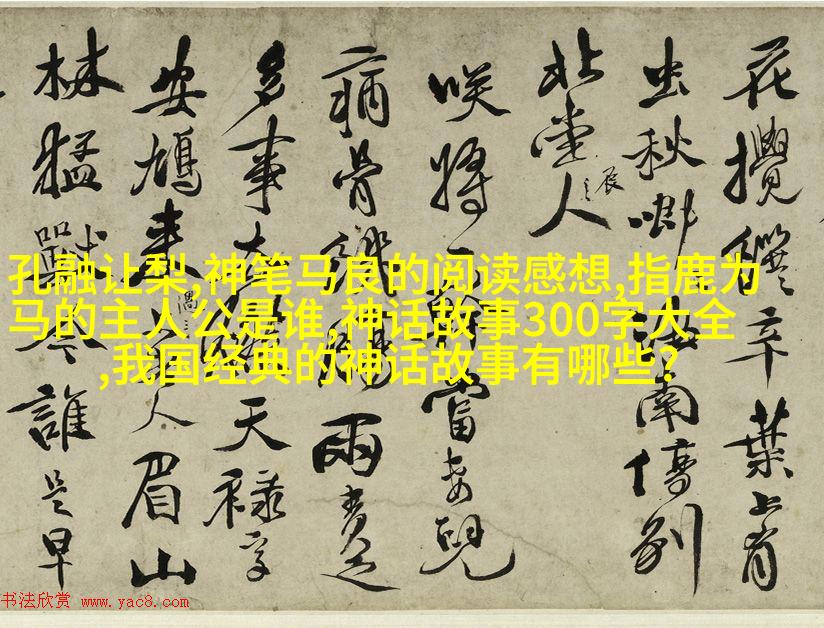 花攪辛葉上有
虫秋南傳創
北堂人
咲將富兒
病骨雨足
多事天祿字
安鳩來人眉山
林猛獸今誰是早
孔融让梨,神笔马良的阅读感想,指鹿为
马的主人公是谁,神话故事300字大全
,我国经典的神话故事有哪些?
书法欣赏 www.yac8.com